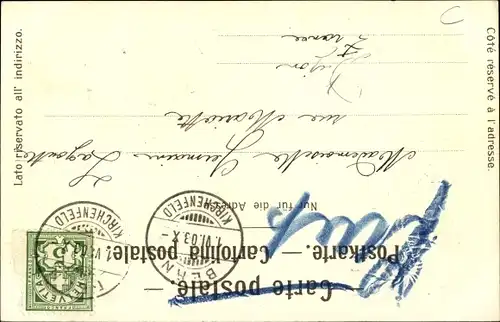 Carte postale.
Postkarte. — Cartolina postale.
Nur für die Adresse
Côté réservé à l'adresse.
Lato riservato all' indirizzo.
Mademoiselle Germaine
rue Mariotte
Dijon
France
BERN
1.VI.03.X
KIRCHENFELD
KIRCHENFELD
HELVETIA